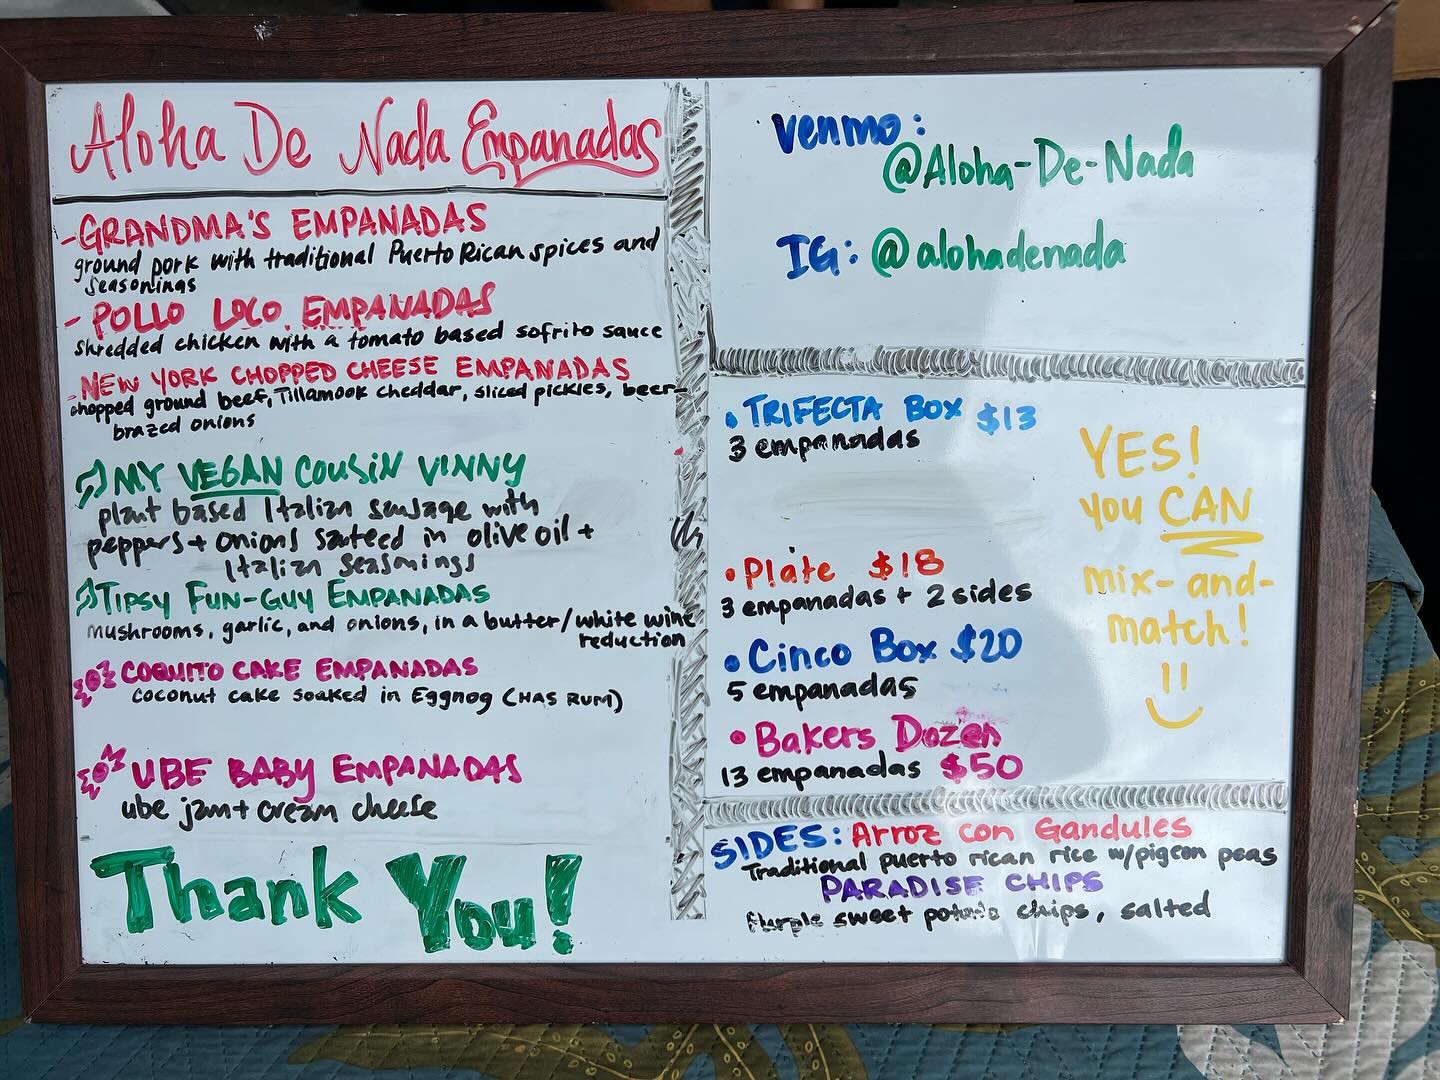 Aloha De Nada Empanadas
- GRANDMA'S EMPANADAS
ground pork with traditional Puerto Rican spices and
seasonings
- POLLO LOCO EMPANADAS
shredded chicken with a tomato based sofrito sauce
- NEW YORK CHOPPED CHEESE EMPANADAS
chopped ground beef, Tillamook cheddar, sliced pickles, beer-
brazed onions
MY VEGAN COUSIN VINNY
plant based Italian sausage with
peppers + onions sauteed in olive oil +
Italian seasonings
TIPSY FUN-GUY EMPANADAS
mushrooms, garlic, and onions, in a butter/white wine
reduction
COQUITO CAKE EMPANADAS
coconut cake soaked in Eggnog (HAS RUM)
UBE BABY EMPANADAS
ube jam + cream cheese
Thank You!
Venmo:
@Aloha-De-Nada
IG: @alohadenada
• TRIFECTA BOX $13
3 empanadas
• Plate $18
3 empanadas + 2 sides
• Cinco Box $20
5 empanadas
• Bakers Dozen
13 empanadas $50
YES!
you CAN
mix-and-
match!
SIDES: Arroz con Gandules
Traditional puerto rican rice w/pigeon peas
PARADISE CHIPS
sweet potato chips, salted